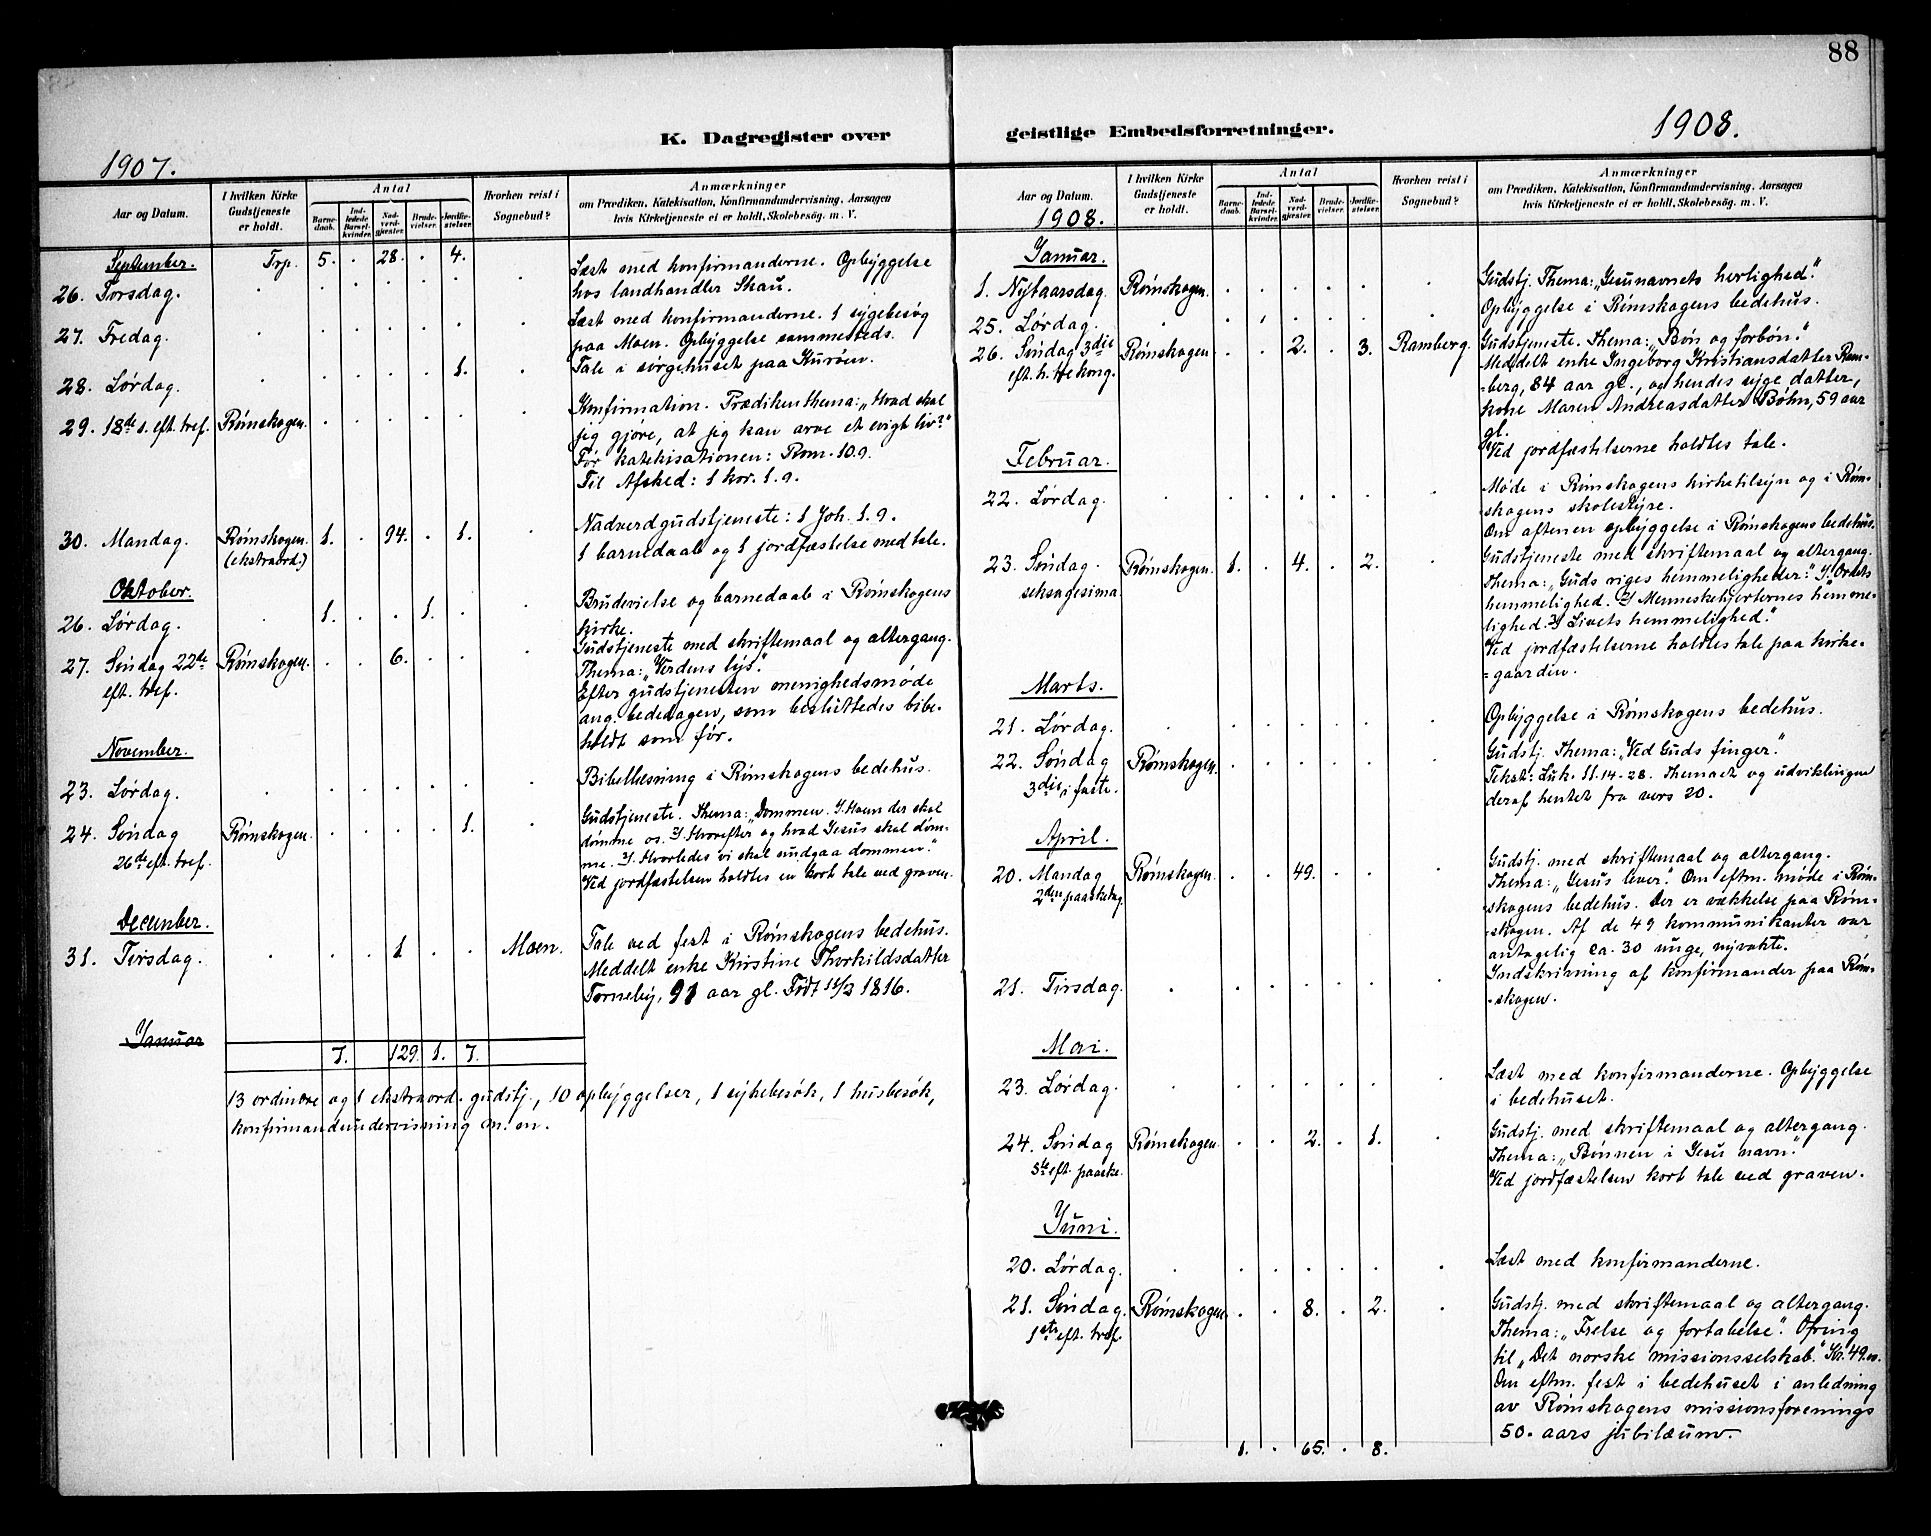 88
K. Dagregister over
geistlige Embedsforretninger.
1907.
1908.
Aar og Datum.
I hvilken Kirke Gudstjeneste er holdt.
Antal
Barne-daab.
Ind-ledede Barsel-kvinder.
Nad-verd-gjæster.
Brude-vielser.
Jordfæ-stelser.
Hvorhen reist i Sognebud?
Anmærkninger
om Prædiken, Katekisation, Konfirmandundervisning, Aarsagen
hvis Kirketjeneste ei er holdt, Skolebesøg. m. V.
September. Trp. 5. . 28. . 4.
26. Torsdag.
Læst med konfirmanderne. Opbyggelse
hos landhandler Skau.
27. Fredag.
Læst med konfirmanderne. 1 sygebesøg
paa Moen. Opbyggelse sammesteds.
28. Lørdag. 1.
Tale i sørgehuset paa Kurøen.
29. 18de s. eft. tref. Rømskogen.
Konfirmation. Prædikenthema: „Hvad skal
jig gjøre, at jig kan arve et evigt liv?"
Før katekisationen: Rom. 10.9.
Til Afsked: 1 kor. 1.9.
30. Mandag. Rømskogen. (ekstraord.) 1. . 94. . 1.
Nadverdgudstjeneste: 1 Joh. 1.9.
1 barnedaab og 1 jordfæstelse med tale.
Oktober.
26. Lørdag. 1. . . 1.
Brudevielse og barnedaab i Rømskogens
kirke.
27. Søndag 22de Rømskogen. . . 6.
eft. tref.
Gudstjeneste med skriftemaal og altergang.
Thema: „Verdens lys".
Efter gudstjenesten menighedsmøde
ang. bededagen, som besluttedes bibe-
holdt som før.
November.
23. Lørdag.
Bibellæsning i Rømskogens bedehus.
24. Søndag Rømskogen. 1.
26de eft. tref.
Gudstjeneste. Thema: „Dommen. 1/ Hvem der skal
dømme os. 2/ Hvorefter og hvad Jesus skal døm-
me. 3/ Hvorledes vi skal undgaa dommen."
Ved jordfæstelsen holdtes en kort tale ved graven.
December.
31. Tirsdag. 1 Moen.
Tale ved fest i Rømskogens bedehus.
Meddelt enke Kirstine Thorkildsdatter
Torneby, 91 aar gl. Født 11/3 1816.
Januar
7. 129. 1. 7.
13 ordinære og 1 ekstraord. gudstj., 10 opbyggelser, 1 sykebesøk, 1 husbesøk,
konfirmandundervisning m. m.
Aar og Datum.
1908.
I hvilken Kirke Gudstjeneste er holdt.
Antal
Barne-daab.
Ind-ledede Barsel-kvinder.
Nad-verd-gjæster.
Brude-vielser.
Jordfæ-stelser.
Hvorhen reist i Sognebud?
Anmærkninger
om Prædiken, Katekisation, Konfirmandundervisning, Aarsagen
hvis Kirketjeneste ei er holdt, Skolebesøg. m. V.
Januar.
1. Nytaarsdag. Rømskogen.
Gudstj. Thema: „Jesunavnets herlighed."
25. Lørdag.
Opbyggelse i Rømskogens bedehus.
26. Søndag 3die Rømskogen . . 2. . 3. Ramberg.
eft. h. tre kong.
Gudstjeneste. Thema: „Bøn og forbøn."
Meddelt enke Ingeborg Kristiansdatter Ram-
-berg, 84 aar gl., og hendes syge datter,
kone Maren Andreasdatter Bøhn, 59 aar
gl.
Ved jordfæstelserne holdtes tale.
Februar.
22. Lørdag.
Møde i Rømskogens kirketilsyn og i Røm-
skogens skolestyre.
Om aftenen opbyggelse i Rømskogens bedehus.
23. Søndag. Rømskogen. 1. . 4. . 2.
seksagesima.
Gudstjeneste med skriftemaal og altergang.
Thema: „Guds riges hemmeligheder:" 1/ Ordets
hemmelighed. 2/ Menneskehjerternes hemme-
lighed. 3/ Livets hemmelighed."
Ved jordfæstelserne holdtes tale paa kirke-
=gaarden.
Marts.
21. Lørdag.
Opbyggelse i Rømskogens bedehus.
22. Søndag Rømskogen.
3die i faste.
Gudstj. Thema: „Ved Guds finger."
Tekst: Luk. 11.14-28. Themaet og udviklingen
deraf hentet fra vers 20.
April.
20. Mandag Rømskogen. . . 49.
2den paaskedag.
Gudstj. med skriftemaal og altergang.
Thema: „Jesus lever." Om eftm. møde i Røm-
-skogens bedehus. Der er vækkelse paa Røm-
-skogen. Af de 49 kommunikanter var
antagelig ca. 30 unge, nyvakte.
21. Tirsdag.
Indskrivning af konfirmander paa Røm-
-skogen.
Mai.
23. Lørdag.
Læst med konfirmanderne. Opbyggelse
i bedehuset.
24. Søndag Rømskogen. . . 2. . 1.
5te eft. paaske.
Gudstj. med skriftemaal og altergang.
Thema: „Bønnen i Jesu navn."
Ved jordfæstelsen kort tale ved graven.
Juni.
20. Lørdag.
Læst med konfirmanderne.
21. Søndag. Rømskogen. . . 8. . 2.
1ste eft. tref.
Gudstj. med skriftemaal og altergang.
Thema: „Frelse og fortabelse". Ofring
til „Det norske missionsselskab." Kr. 49.00.
Om eftm. fest i bedehuset i anledning
av Rømskogens missionsforenings
50-aars jubilæum.
1. . 65. . 8.